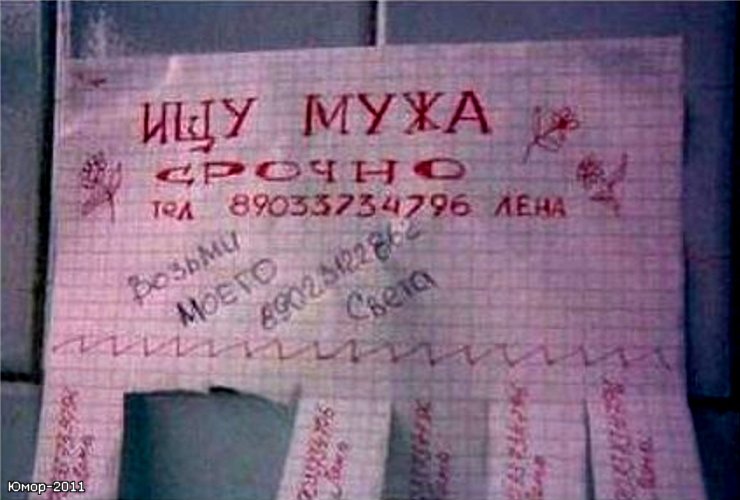 ИЩУ МУЖА
СРОЧНО
тел 89033734796 ЛЕНА
Возьми
МОЕГО
89023122862
Света
Лена
Лена
Лена
Лена
Юмор-2011